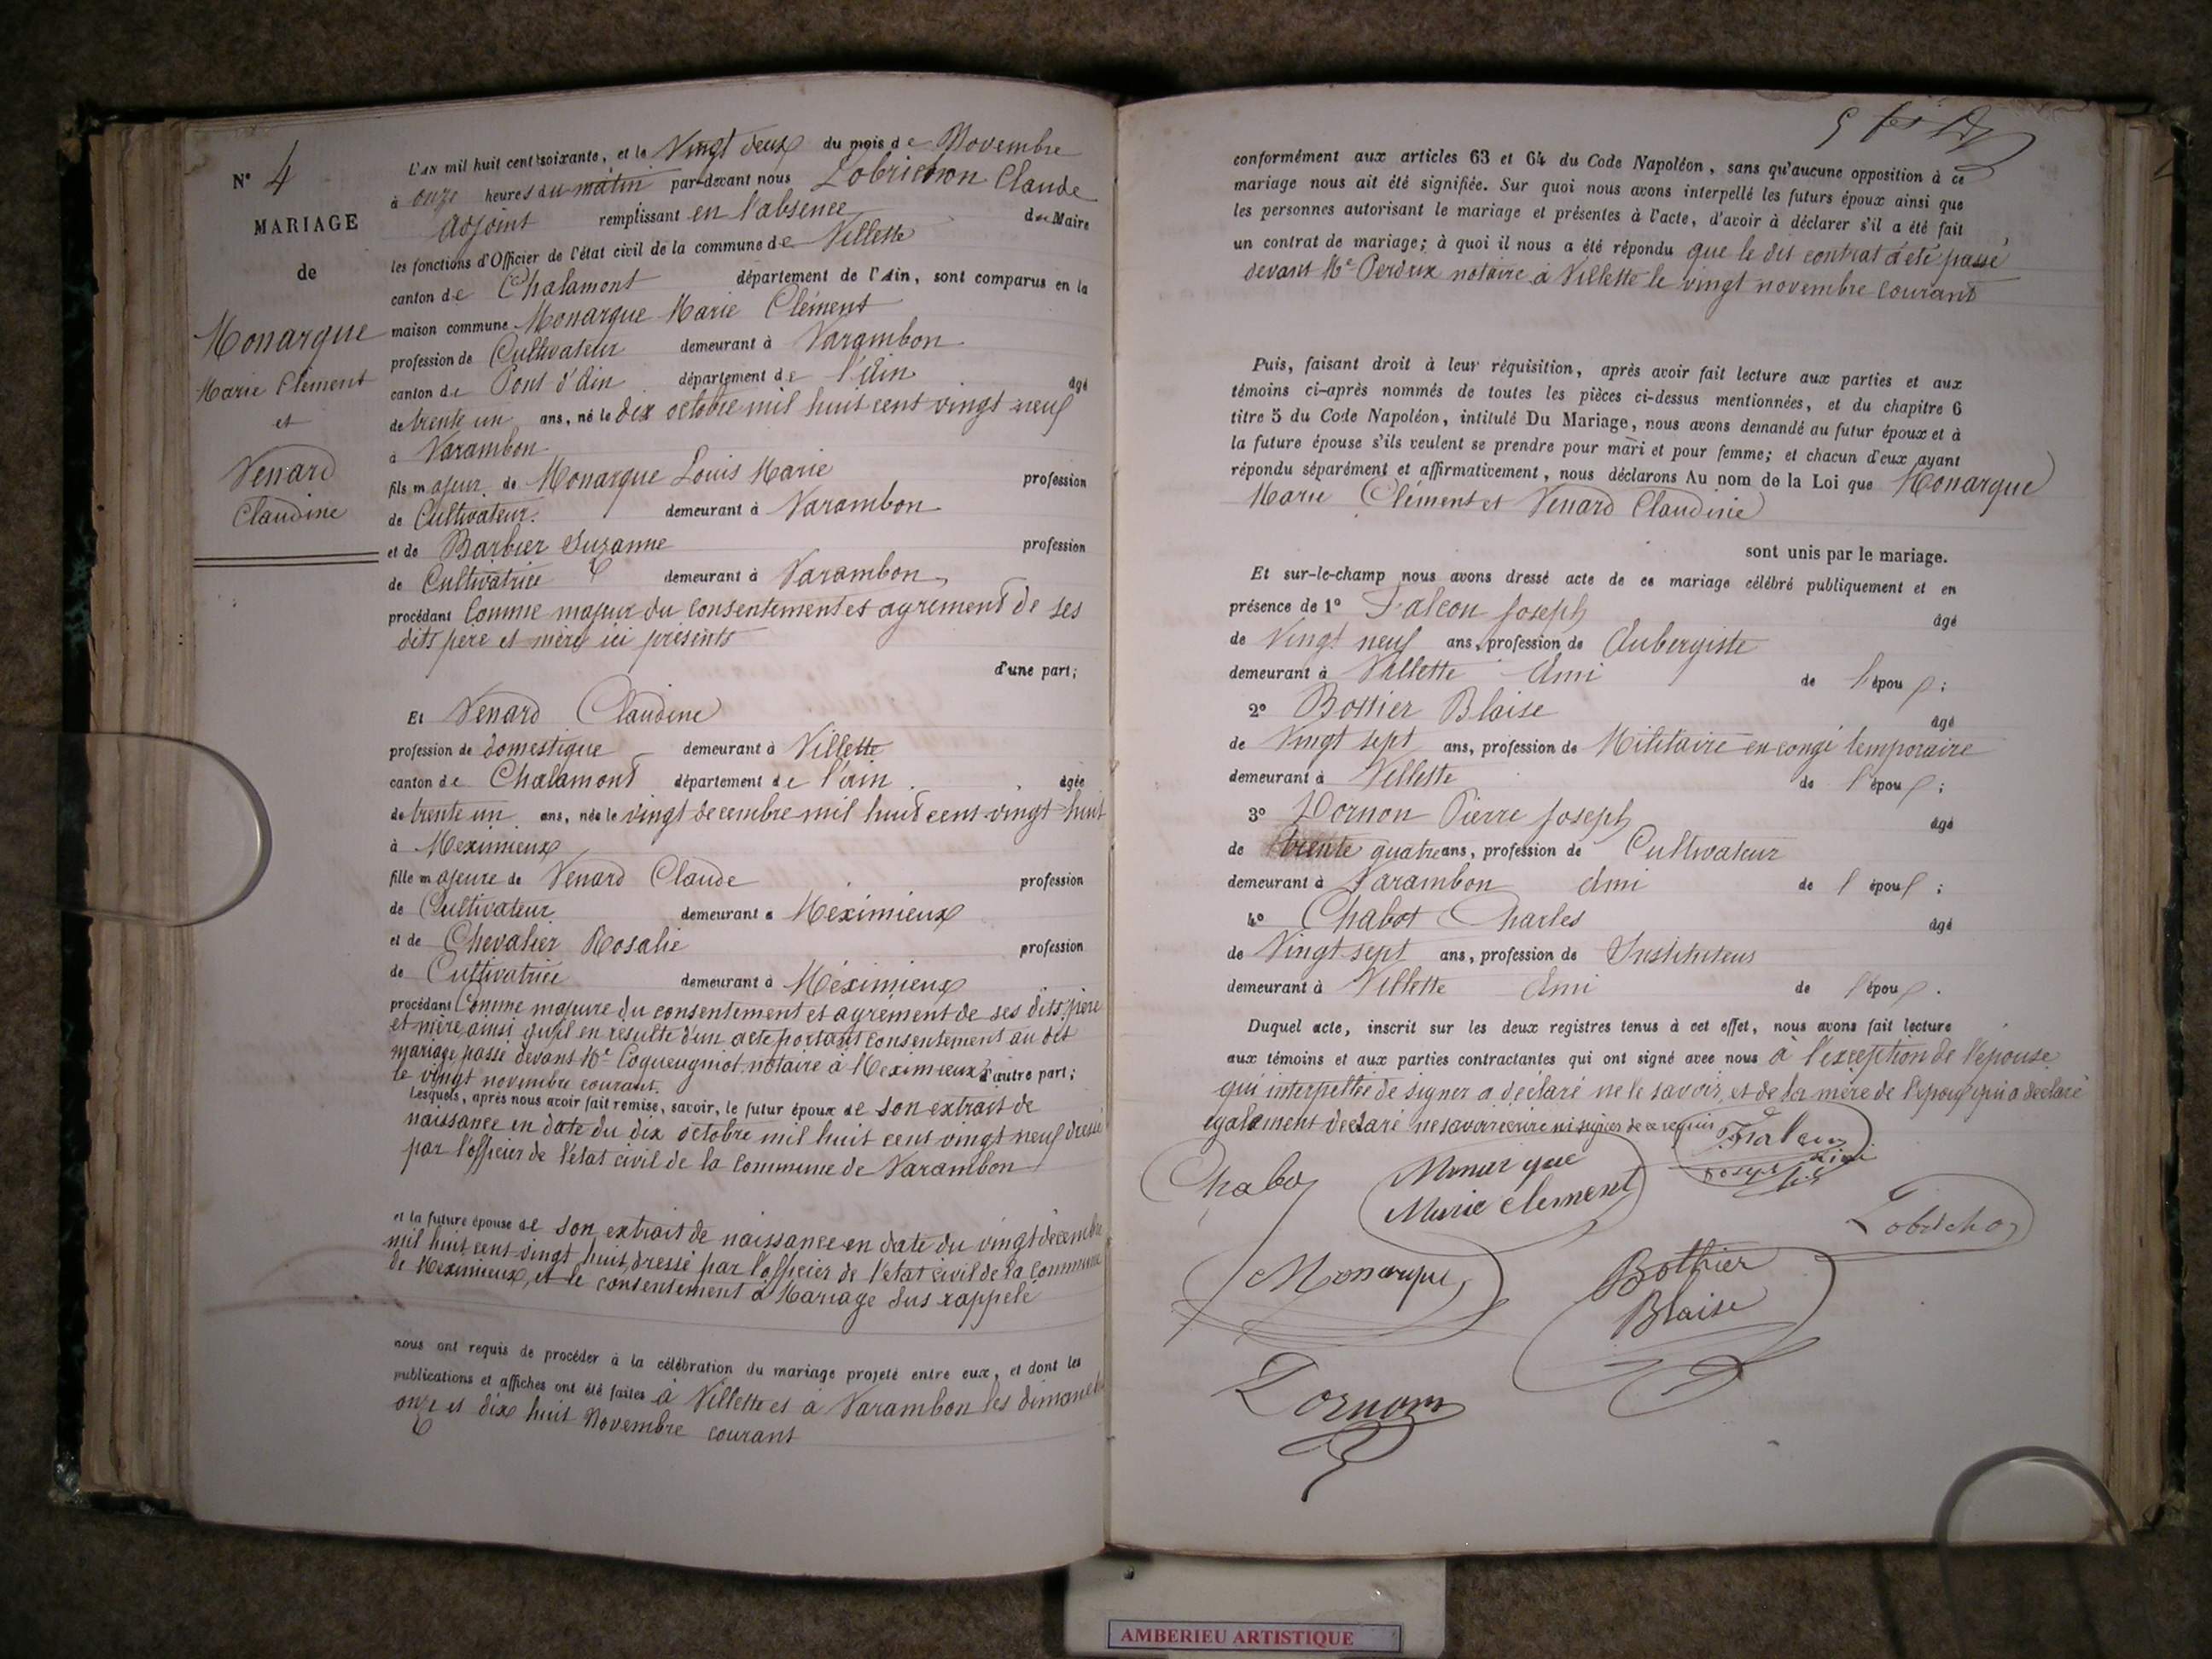 N° 4
MARIAGE
de
Monarque
Marie Clément
et
Venard
Claudine
L'AN mil huit cent soixante, et le Vingt deux du mois de Novembre
à onze heures du matin par-devant nous Lobrichon Claude
adjoint remplissant en l'absence du Maire
les fonctions d'Officier de l'état civil de la commune de Villette
canton de Chalamont département de l'Ain, sont comparus en la
maison commune Monarque Marie Clément
profession de Cultivateur demeurant à Varambon
canton de Pont d'Ain département de l'Ain âgé
de trente un ans, né le dix octobre mil huit cent vingt neuf
à Varambon
fils majeur de Monarque Louis Marie profession
de Cultivateur demeurant à Varambon
et de Barbier Suzanne profession
de Cultivatrice demeurant à Varambon
procédant Comme majeur du consentement et agrement de ses
dits père et mère ici présents
d'une part;
Et Venard Claudine
profession de domestique demeurant à Villette
canton de Chalamont département de l'ain âgée
de trente un ans, née le vingt decembre mil huit cent vingt huit
à Meximieux
fille majeure de Venard Claude profession
de Cultivateur demeurant à Meximieux
et de Chevalier Rosalie profession
de Cultivatrice demeurant à Méximieux
procédant Comme majure du consentement et agrement de ses dits père
et mère ainsi qu'il en résulte d'un acte portant consentement au dit
mariage passé devant Me Coqueugniot notaire à Meximieux d'autre part;
le vingt novembre courant.
Lesquels, après nous avoir fait remise, savoir, le futur époux de son extrait de
naissance en date du dix octobre mil huit cent vingt neuf dressé
par l'officier de l'état civil de la Commune de Varambon
et la future épouse de son extrait de naissance en date du vingt decembre
mil huit cent vingt huit, dressé par l'officier de l'état civil de la Commune
de Meximieux, et le consentement à Mariage sus rappelé
nous ont requis de procéder à la célébration du mariage projeté entre eux, et dont les
publications et affiches ont été faites à Villette et à Varambon les dimanche
onze et dix huit Novembre courant
conformément aux articles 63 et 64 du Code Napoléon, sans qu'aucune opposition à ce
mariage nous ait été signifiée. Sur quoi nous avons interpellé les futurs époux ainsi que
les personnes autorisant le mariage et présentes à l'acte, d'avoir à déclarer s'il a été fait
un contrat de mariage; à quoi il nous a été répondu que le dit contrat a été passé
devant Me Perdrix notaire à Villette le vingt novembre courant
Puis, faisant droit à leur réquisition, après avoir fait lecture aux parties et aux
témoins ci-après nommés de toutes les pièces ci-dessus mentionnées, et du chapitre 6
titre 5 du Code Napoléon, intitulé Du Mariage, nous avons demandé au futur époux et à
la future épouse s'ils veulent se prendre pour mari et pour femme; et chacun d'eux ayant
répondu séparément et affirmativement, nous déclarons Au nom de la Loi que Monarque
Marie Clément et Venard Claudine
sont unis par le mariage.
Et sur-le-champ nous avons dressé acte de ce mariage célébré publiquement et en
présence de 1° Falcon Joseph âgé
de Vingt neuf ans, profession de Aubergiste
demeurant à Villette Ami de l'époux;
2° Bottier Blaise âgé
de Vingt sept ans, profession de Militaire en congé temporaire
demeurant à Villette de l'époux;
3° Dornon Pierre Joseph âgé
de trente quatre ans, profession de Cultivateur
demeurant à Varambon Ami de l'époux;
4° Chabot Charles âgé
de Vingt sept ans, profession de Instituteur
demeurant à Villette Ami de l'époux.
Duquel acte, inscrit sur les deux registres tenus à cet effet, nous avons fait lecture
aux témoins et aux parties contractantes qui ont signé avec nous à l'exception de l'épouse
qui interpellée de signer a déclaré ne le savoir, et de la mère de l'époux qui a déclaré
également declaré ne savoir écrire ni signer de ce requis
Chabot
Monarque
Marie clement
Falcon
Joseph
Lobrichon
Monarque
Bothier
Blaise
Dornon
AMBERIEU ARTISTIQUE